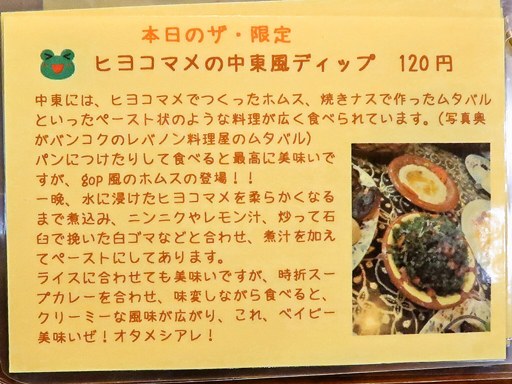 本日のザ・限定
ヒヨコマメの中東風ディップ　120円
中東には、ヒヨコマメでつくったホムス、焼きナスで作ったムタバル
といったペースト状のような料理が広く食べられています。(写真奥
がバンコクのレバノン料理屋のムタバル)
パンにつけたりして食べると最高に美味いで
すが、gop 風のホムスの登場！！
一晩、水に浸けたヒヨコマメを柔らかくなる
まで煮込み、ニンニクやレモン汁、炒って石
臼で挽いた白ゴマなどと合わせ、煮汁を加え
てペーストにしてあります。
ライスに合わせても美味いですが、時折スー
プカレーを合わせ、味変しながら食べると、
クリーミーな風味が広がり、これ、ベイビー
美味いぜ！オタメシアレ！